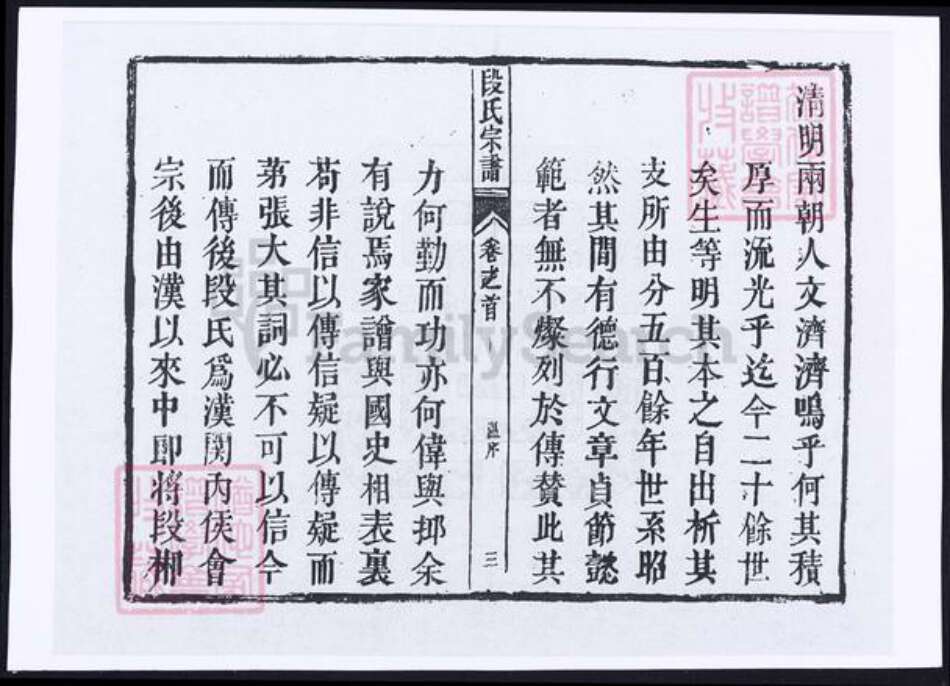 清明兩朝人文濟濟嗚乎何其積
厚而流光乎迄今二十餘世
矣生等明其本之自出析其
支所由分五百餘年世系昭
然其間有德行文章貞節懿
範者無不燦列於傳贊此其
段氏宗譜
卷之首
序
三
力何勤而功亦何偉與抑余
有說焉家譜與國史相表裏
苟非信以傳信疑以傳疑而
苐張大其詞必不可以信今
而傳後段氏爲漢関內侯會
宗後由漢以來中郎將段郴
FamilySearch